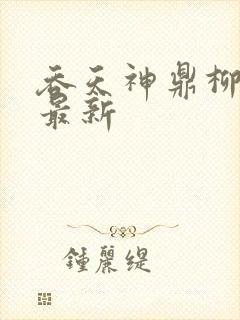 吞天神鼎柳
最新
鍾麗緹